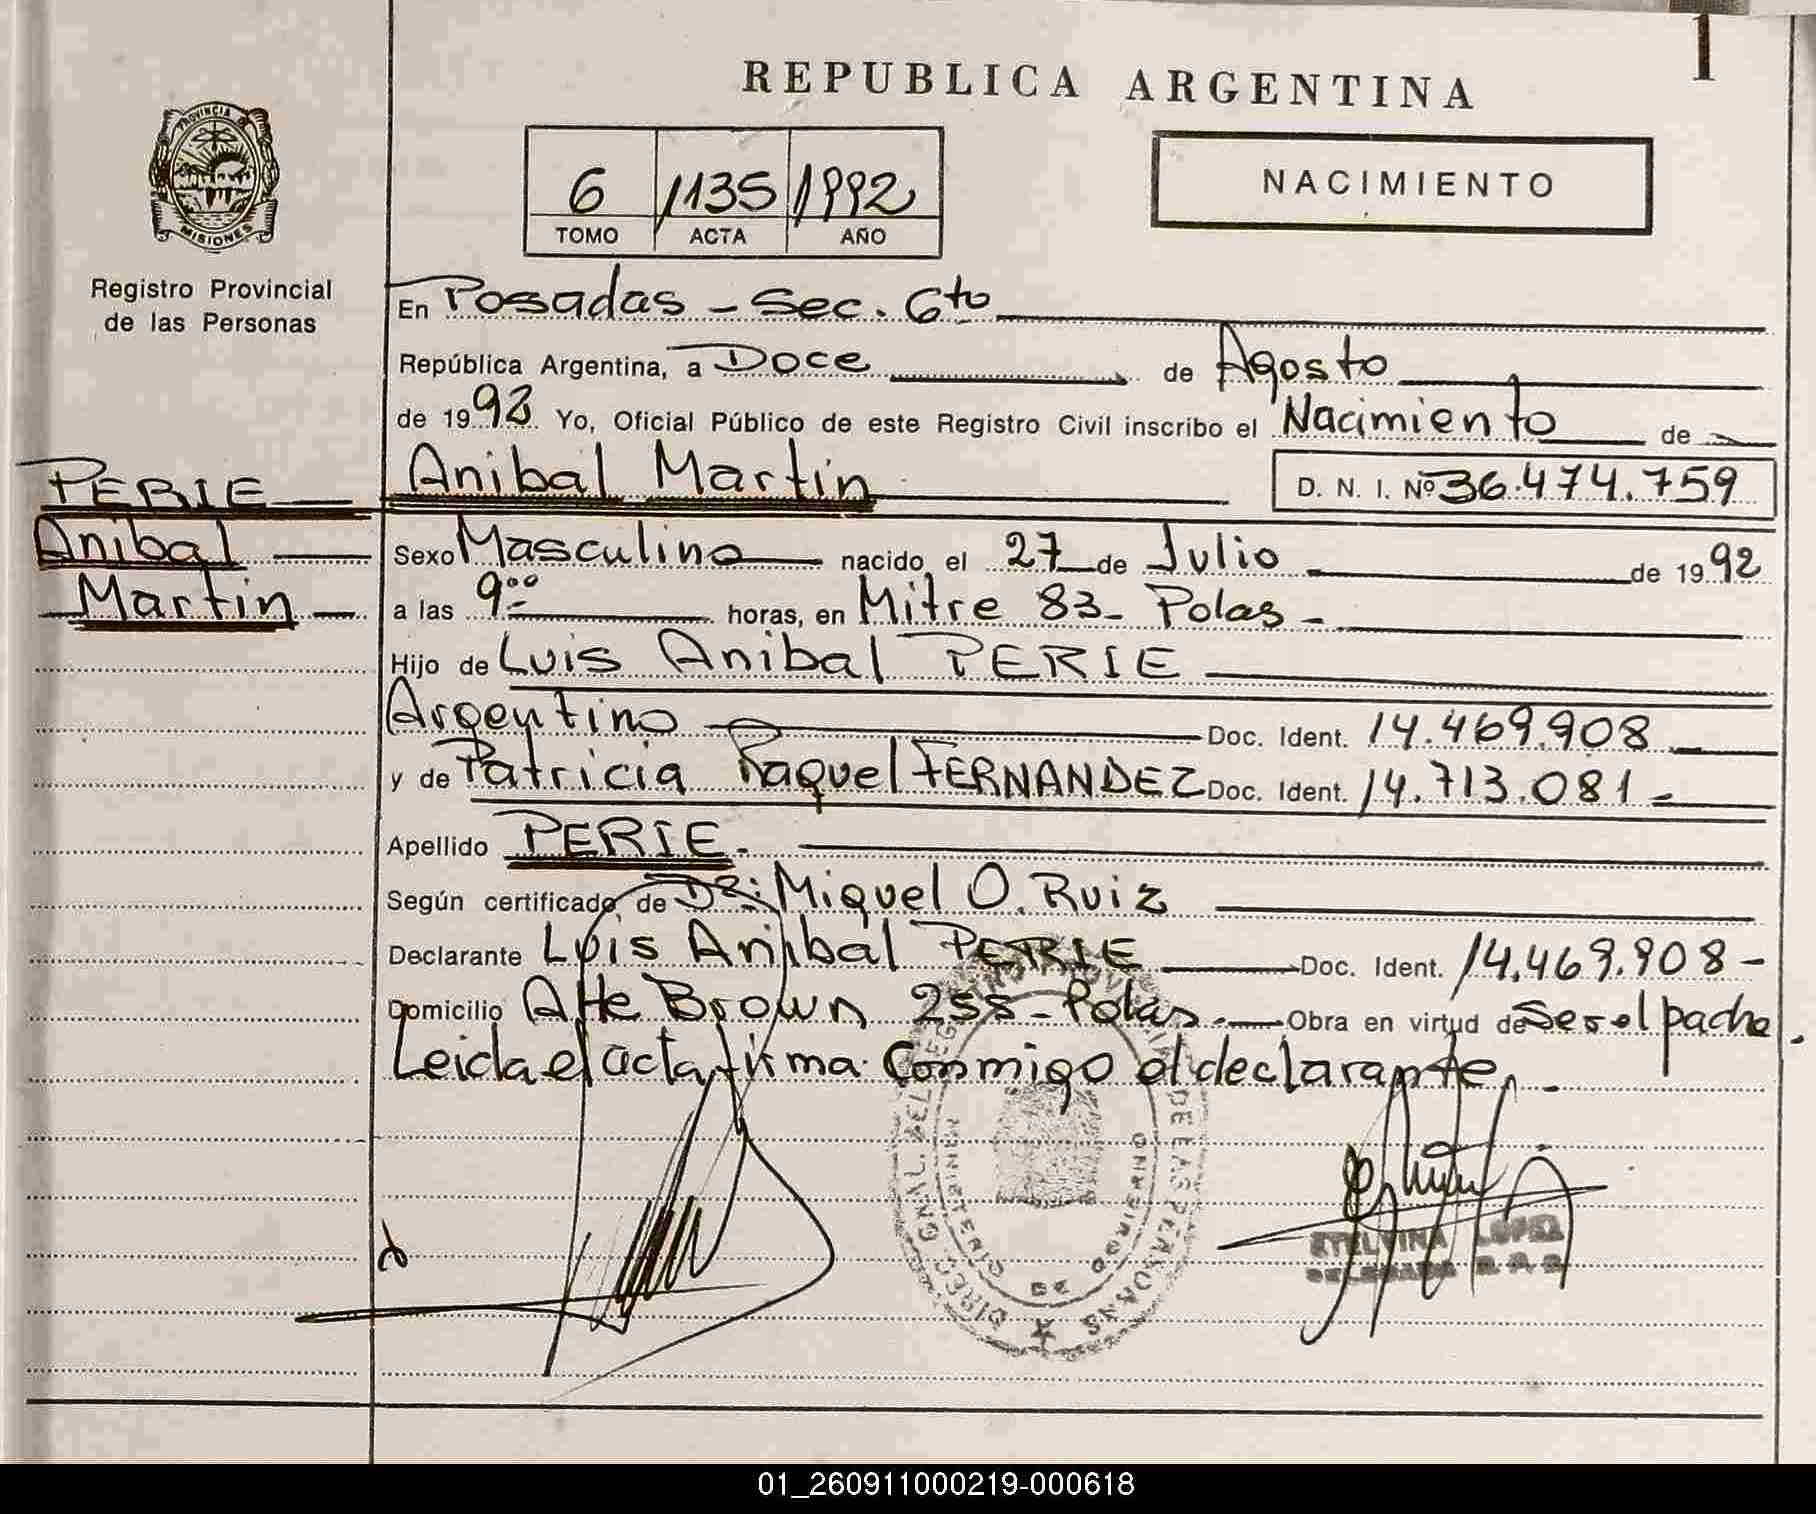 1
REPUBLICA ARGENTINA
PROVINCIA DE
MISIONES
Registro Provincial
de las Personas
6 1135 1992
TOMO ACTA AÑO
NACIMIENTO
En Posadas - Sec. 6to
República Argentina, a Doce de Agosto
de 1992 Yo, Oficial Público de este Registro Civil inscribo el Nacimiento de
PERIE
Anibal
Martin
Anibal Martin D. N. I. Nº 36.474.759
Sexo Masculino nacido el 27 de Julio de 1992
a las 9°° horas, en Mitre 83 - Pdas -
Hijo de Luis Anibal PERIE
Argentino Doc. Ident. 14.469.908
y de Patricia Raquel FERNANDEZ Doc. Ident. 14.713.081 -
Apellido PERIE.
Según certificado de DR: Miguel O. Ruiz
Declarante Luis Anibal PERIE Doc. Ident. 14.469.908 -
Domicilio Alte Brown 255 - Pdas. Obra en virtud de Ser el padre.
Leida el acta firma conmigo el declarante. -
ETELVINA LOPEZ
01_260911000219-000618